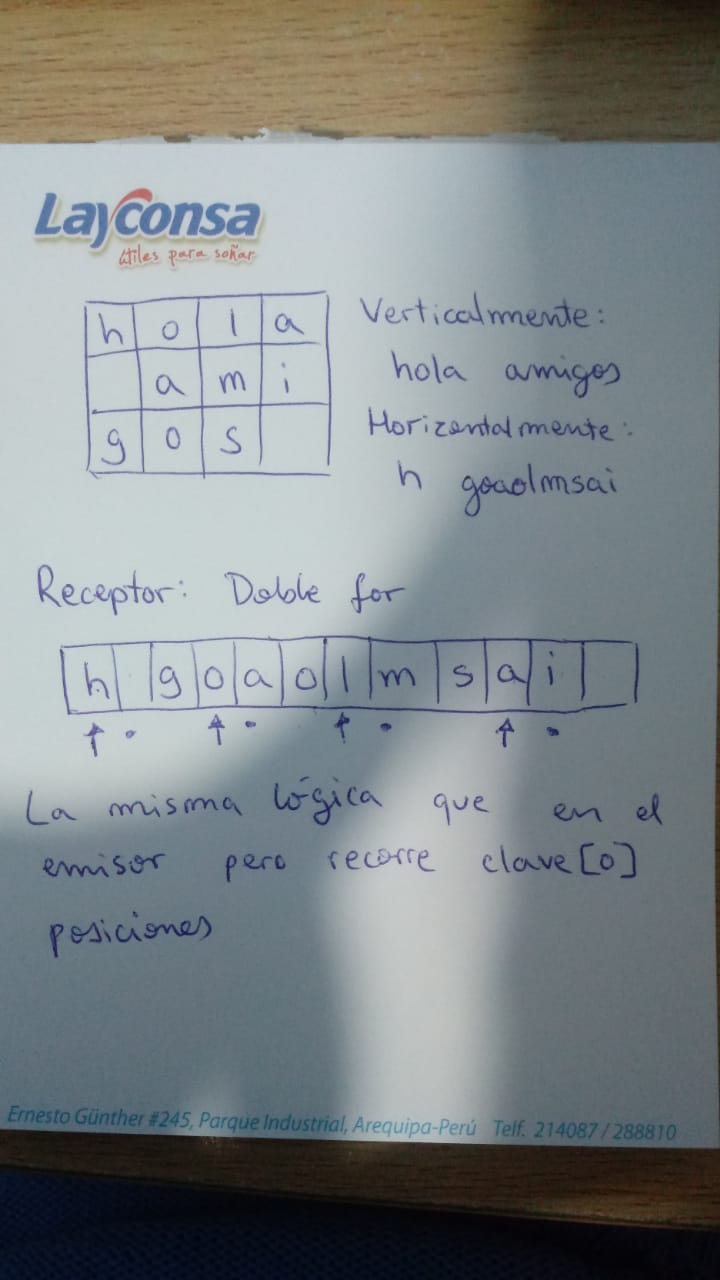 Layconsa
útiles para soñar
h o l a
a m i
g o s
Verticalmente:
hola amigos
Horizontalmente:
h goaolmsai
Receptor: Doble for
h g o a o l m s a i
La misma lógica que en el
emisor pero recorre clave[0]
posiciones
Ernesto Günther #245, Parque Industrial, Arequipa-Perú Telf. 214087 / 288810